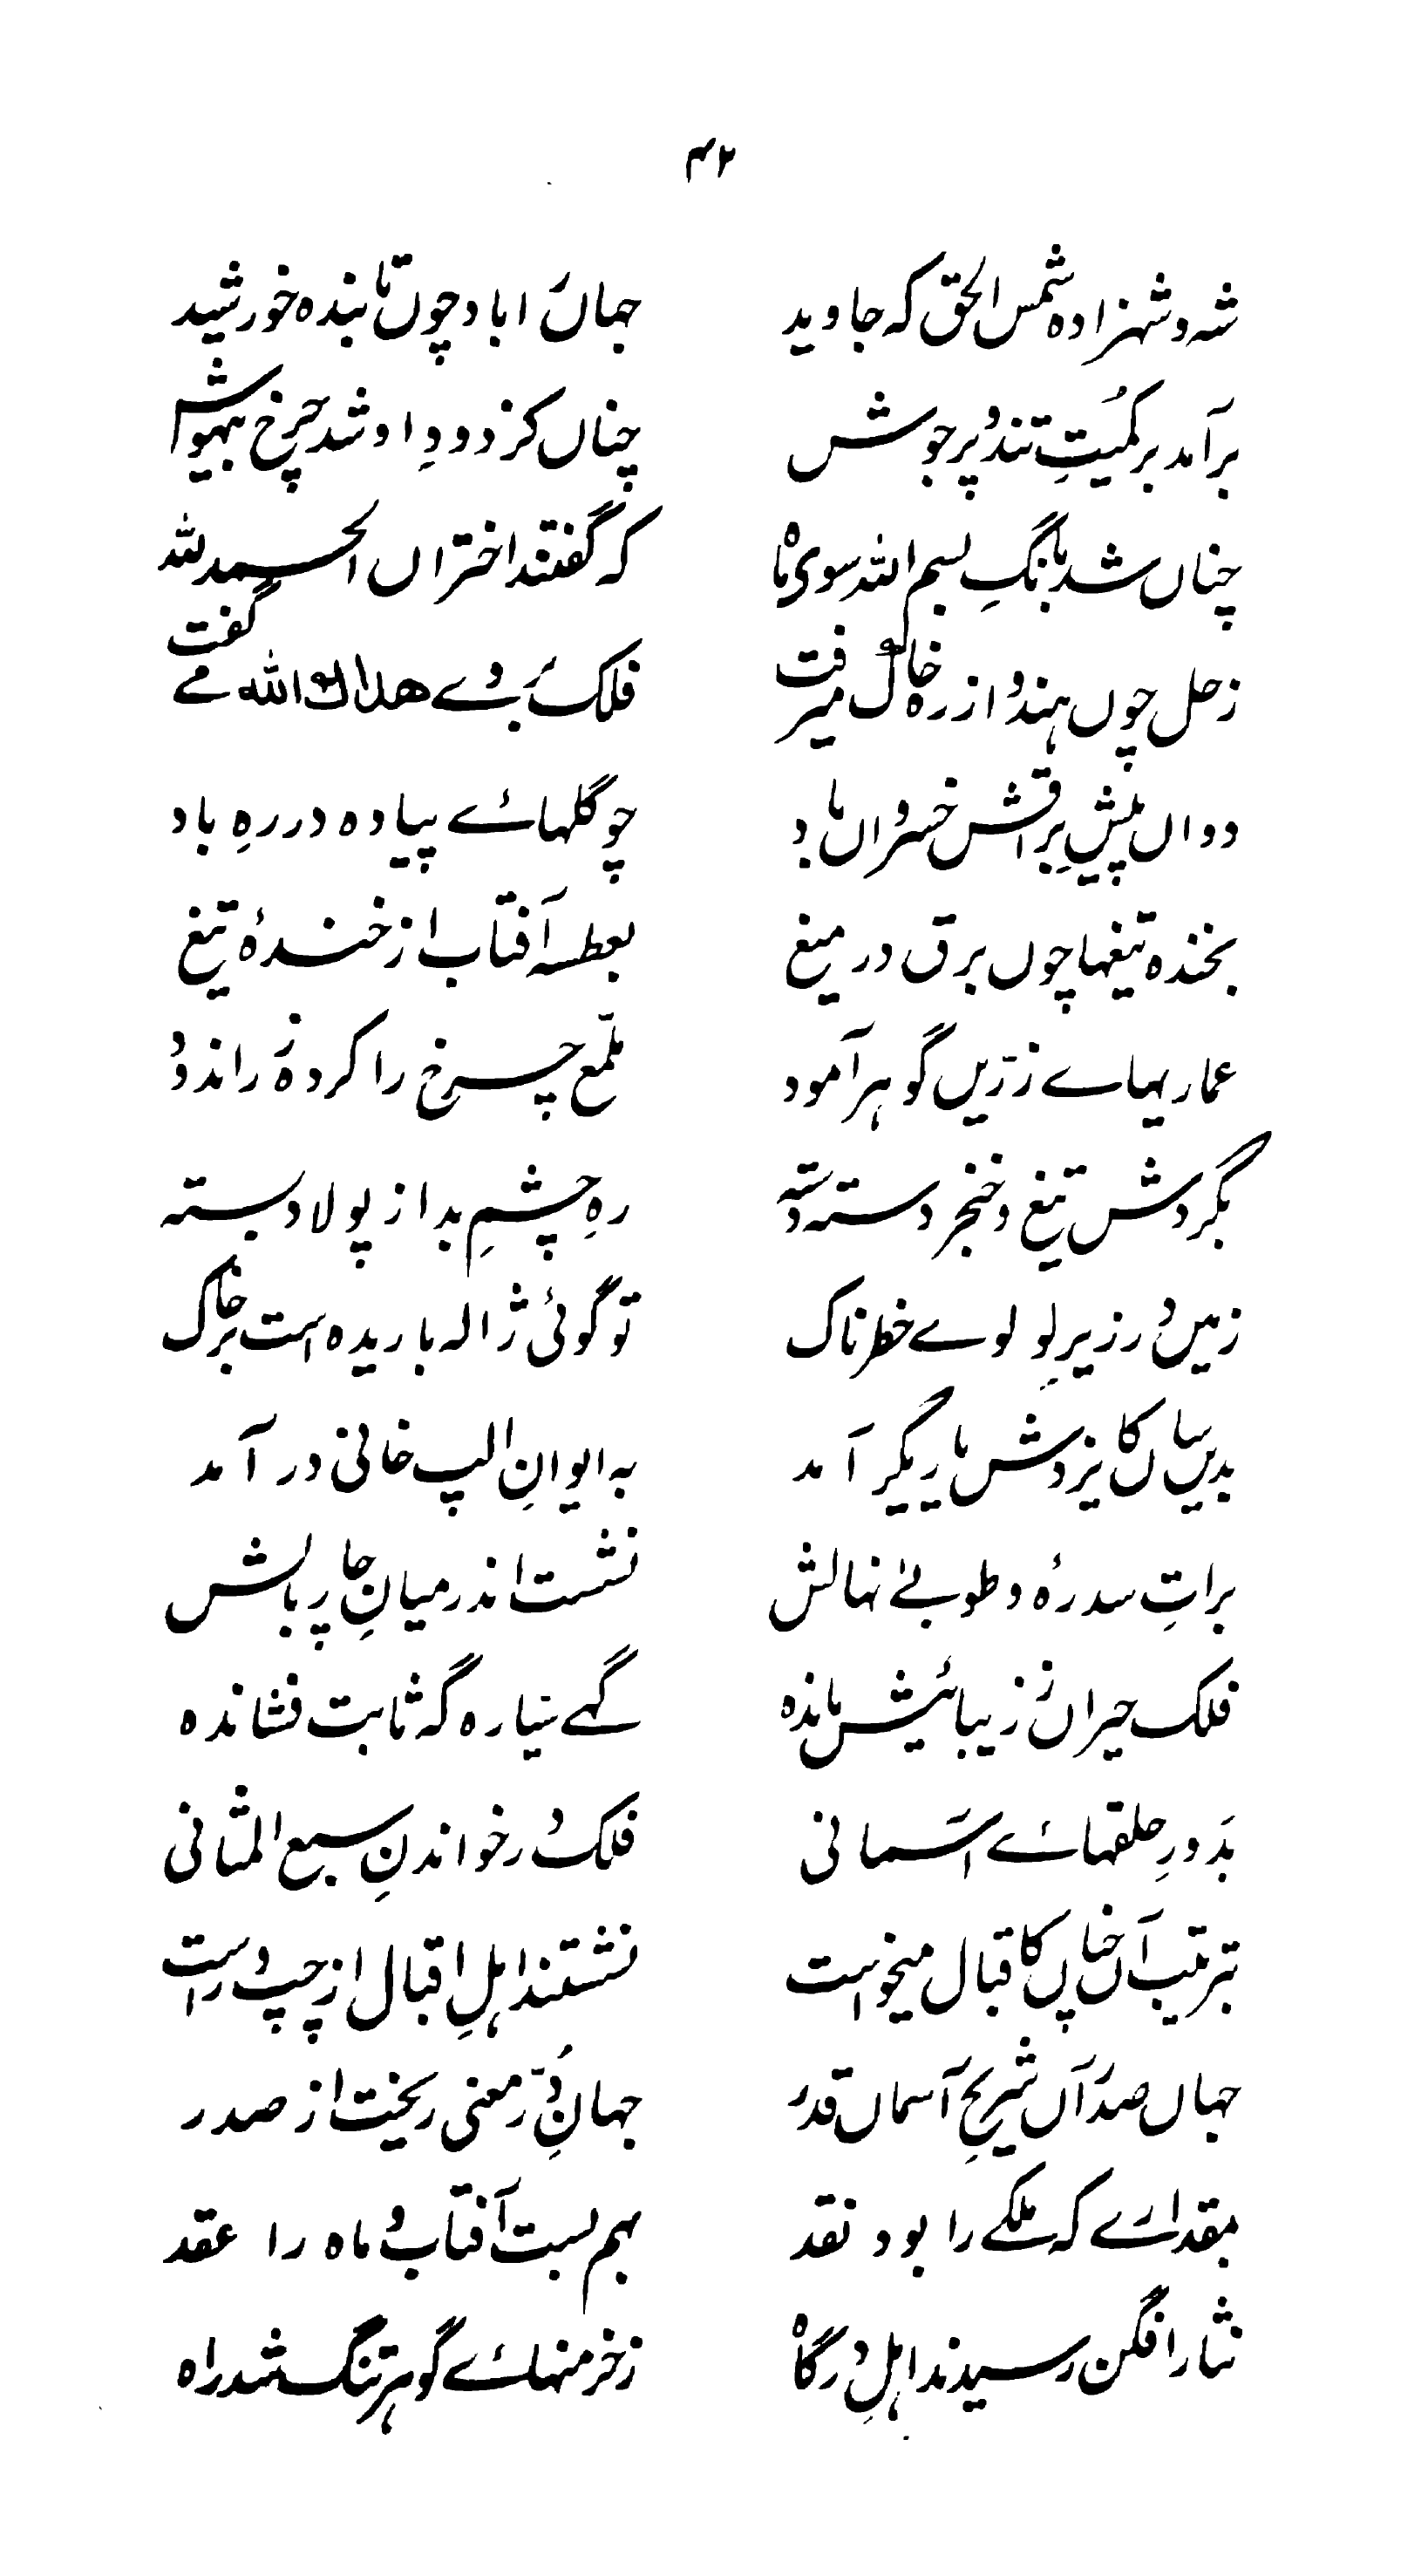 ۴۲
شه و شهزاده شمس الحق که جاوید جهاں را باد چوں تابنده خورشید
برآمد بر کُمیتِ تند و پرجوش چناں کز دودِ او شد چرخ بیهوش
چناں شد بانگِ بسم الله سوی ماه که گفتند اختراں الحمد لله
زحل چوں هندو از ره خال میرفت فلک بر وے هداك الله مے گفت
دواں پیشِ براقش خسرواں باد چو گلهائے پیاده در رهِ باد
بخنده تیغها چوں برق در میغ بعطسه آفتاب از خندهٔ تیغ
عماریهاے زرّیں گوهر آمود ملمّع چرخ را کرده زر اندود
بگردش تیغ و خنجر دسته دسته رهِ چشمِ بد از پولاد بسته
زمیں در زیرِ لولوے خطرناک تو گوئی ژاله باریده است بر خاک
بدیں ساں کایزدش یاریگر آمد به ایوانِ الپ خانی در آمد
براتِ سدرهٔ و طوبےٰ نهالش نشست اندر میانِ چار بالش
فلک حیراں ز زیبائیش مانده گہے سیّاره گه ثابت فشانده
بدَورِ حلقهائے آسمانی فلک در خواندنِ سبع المثانی
بترتیب آں چناں کاقبال میخواست نشستند اهلِ اقبال از چپ و راست
جہاں صدر آں شریحِ آسماں قدر جہانِ دُرّ معنی ریخت از صدر
بمقدارے که ملکے را بود نقد بہم بست آفتاب و ماه را عقد
نثار افگن رسیدند اهلِ درگاه زخرمنهائے گوهر تنگ شد راه